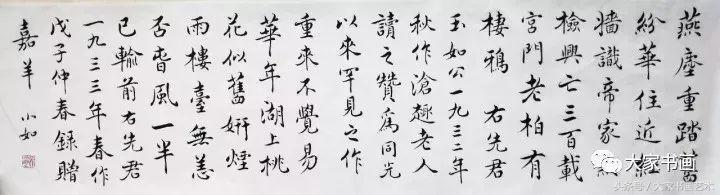 燕塵重踏舊
紛華住近
牆識帝家細
檢興亡三百載
宮門老柏有
棲鴉 右先君
玉如公一九三二年
秋作滄趣老人
讀之贊為同光
以來罕見之作
重來不覺易
華年湖上桃
花似舊妍煙
雨樓臺無恙
否旾風一半
已輸前右先君
一九三三年春作
戊子仲春錄贈
嘉羊 小如
大家书画
头条号/大家书画艺术